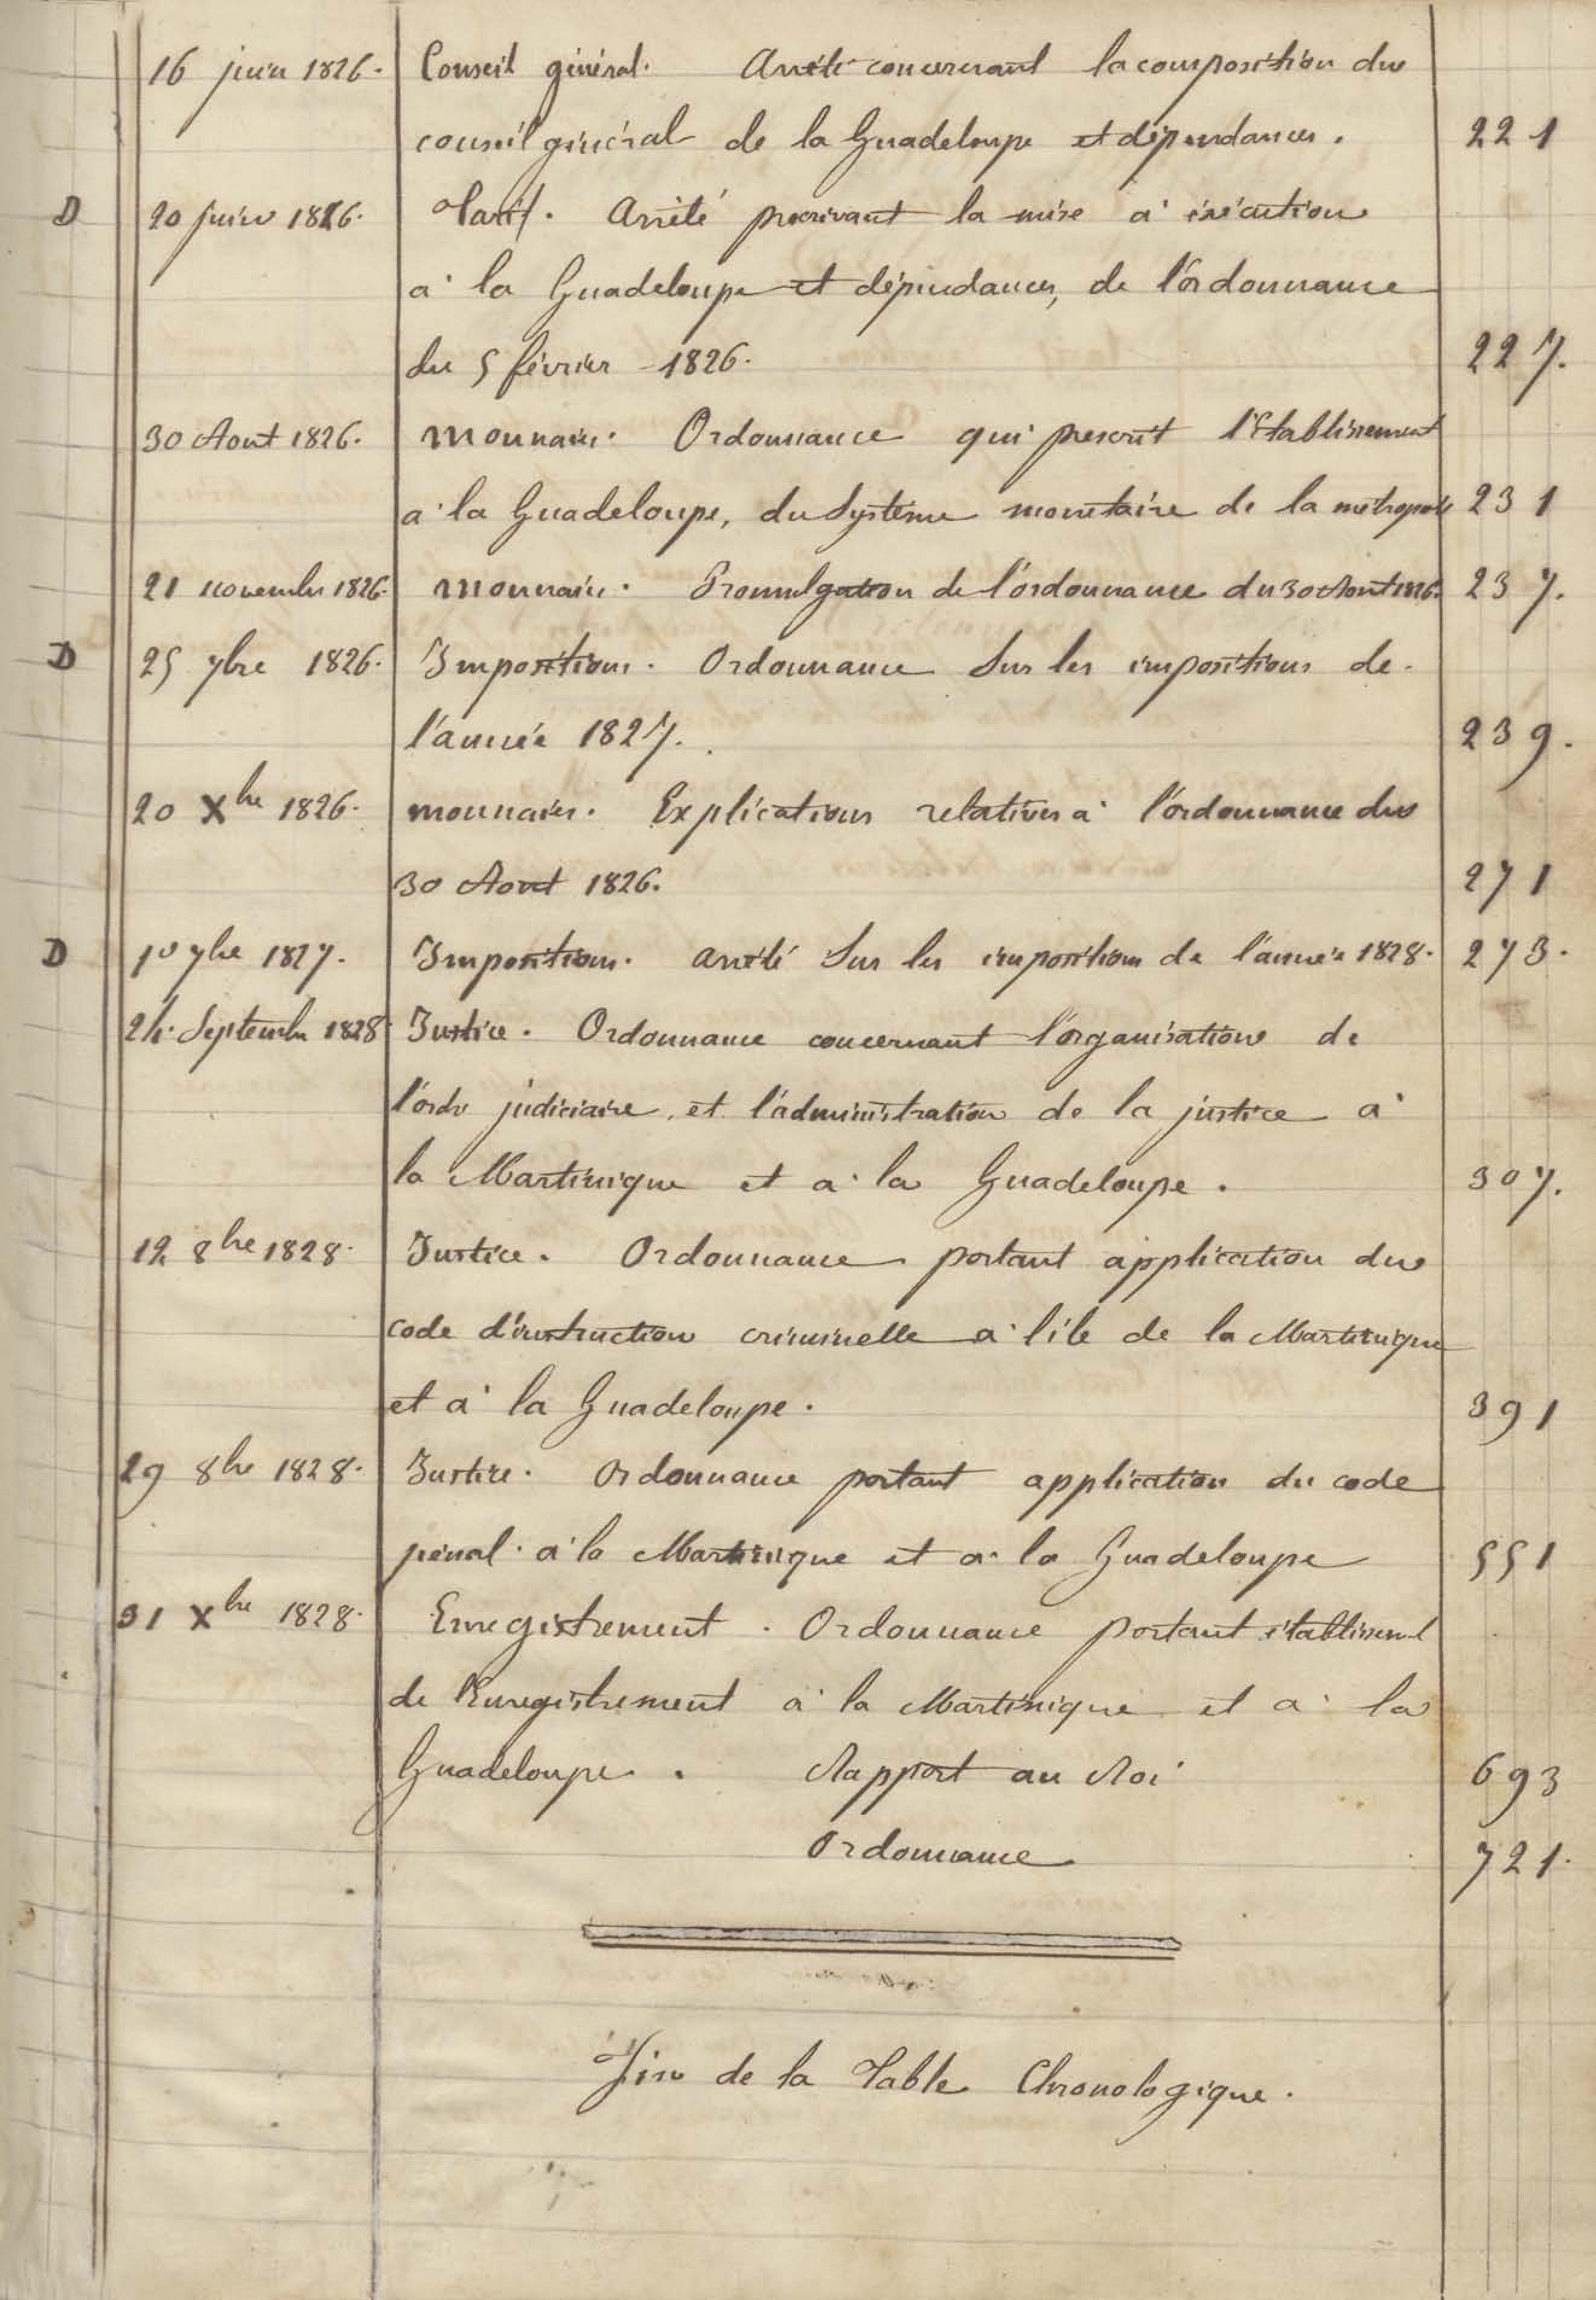 16 juin 1826. Conseil général. Arrêté concernant la composition du
conseil général de la Guadeloupe et dépendances. 221
D 20 juin 1826. Tarif. Arrêté prescrivant la mise à exécution
à la Guadeloupe et dépendances, de l'ordonnance
du 5 février 1826. 227.
30 Aout 1826. Monnaies. Ordonnance qui prescrit l'Etablissement
à la Guadeloupe, du Système monétaire de la métropole 231
21 novembre 1826. Monnaies. Promulgation de l'ordonnance du 30 Aout 1826. 237.
D 25 7bre 1826. Impositions. Ordonnance Sur les impositions de
l'année 1827. 239.
20 Xbre 1826. monnaies. Explications relatives à l'ordonnance du
30 Aout 1826. 271
D 10 7bre 1827. Impositions. arrêté Sur les impositions de l'année 1828. 273.
24 Septembre 1828 Justice. Ordonnance concernant l'organisation de
l'ordre judiciaire et l'administration de la justice à
la Martinique et à la Guadeloupe. 307.
12 8bre 1828. Justice. Ordonnance portant application du
code d'instruction criminelle à l'île de la Martinique
et à la Guadeloupe. 391
29 8bre 1828. Justice. Ordonnance portant application du code
pénal à la Martinique et à la Guadeloupe 551
31 Xbre 1828. Enregistrement. Ordonnance portant établissemt
de l'Enregistrement à la Martinique et à la
Guadeloupe. Rapport au Roi 693
Ordonnance 721.
Fin de la Table Chronologique.